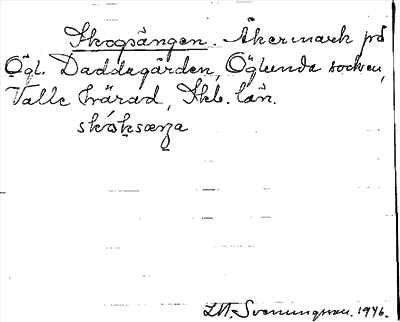 Skogsängen. Åkermark på
Ögl. Daddagården, Öglunda socken,
Valle härad, Skb. län.
skóksæŋa
Sveningsson. 1946.